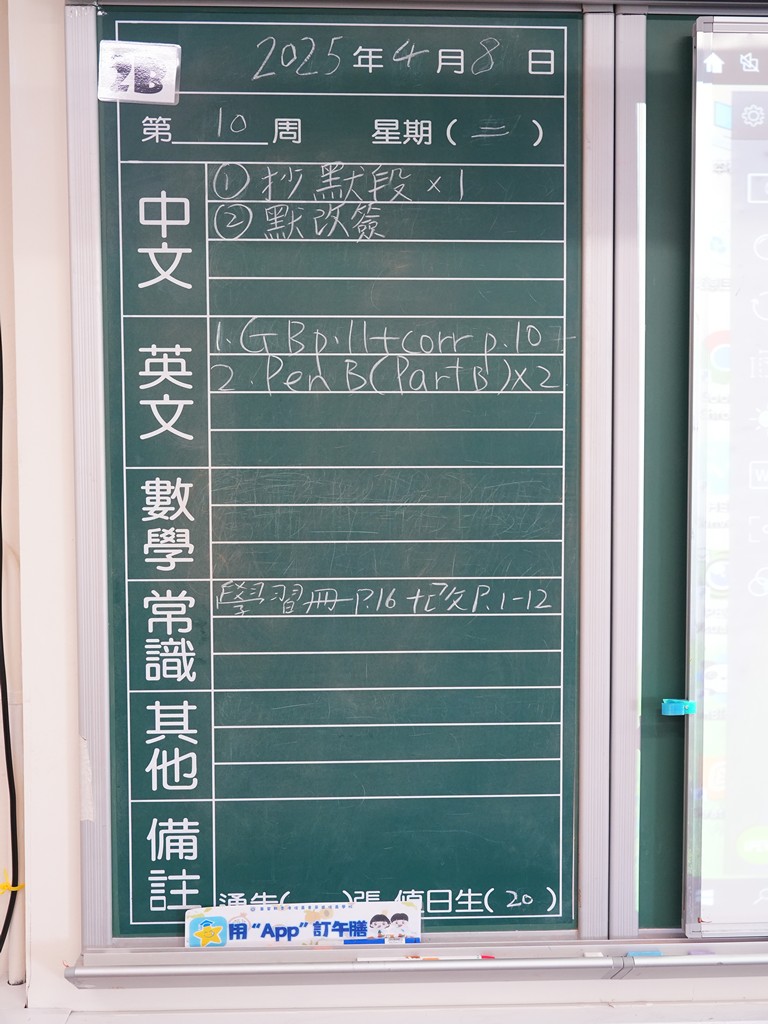 2B
2025年4月8日
第10周 星期(二)
中文
①抄默段×1
②默改簽
英文
1. GB p.11+corr p.10
2. Pen B(Part B)×2
數學
常識
學習冊P.16+改P.1-12
其他
備註
通告( )張 值日生(20)
用“App”訂午膳